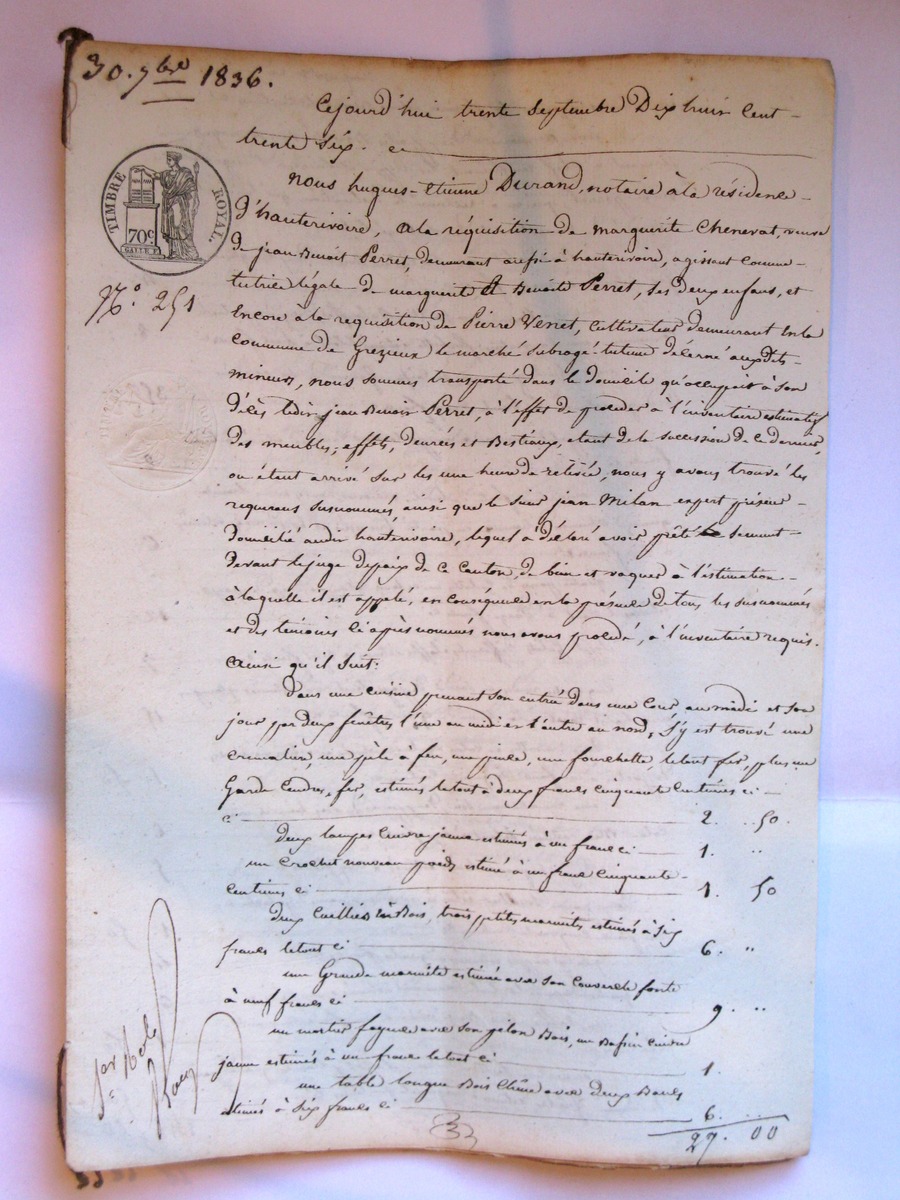 30. 7bre 1836.
Cejourd'hui trente Septembre Dix huit Cent
trente Six. ce
TIMBRE ROYAL.
70c
Nous hugues-etienne Durand, notaire à la résidence
d'hauterivoire, a la réquisition de marguerite Chenevat, veuve
de jean Benoit Perret, demeurant aussi à hauterivoire, agissant comme
No. 251
tutrice légale de marguerite et Benoite Perret, ses deux enfans, et
Encore à la requisition de Pierre Venet, Cultivateur demeurant En la
Commune de Grezieux le marché subrogé-tuteur décerné aux dits
mineurs, nous sommes transporté dans le domicile qu'occupait à son
décès ledit jean Benoit Perret, à l'effet de procéder à l'inventaire estimatif
des meubles, effets, denrées et Bestiaux, etant de la succession de ce dernier,
où étant arrivé sur les une heure de relevée, nous y avons trouvé les
requerans susnommés ainsi que le sieur jean Milan expert priseur
domicilié audit hauterivoire, lequel a déclaré avoir prêté le serment
devant le juge de paix de ce Canton, de bien et vaquer à l'estimation
à laquelle il est appelé, en conséquence en la présence de tous les susnommés
et des temoins ci après nommés nous avons procédé, à l'inventaire requis.
Ainsi qu'il Suit:
Dans une cuisine prenant son entrée dans une Cour au midi et son
jour par deux fenêtres l'une au midi et l'autre au nord, s'y est trouvé une
cremalière, une pêle à feu, une pince, une fourchette, le tout fer, plus un
Garde Cendres, fer, estimés le tout à deux francs cinquante Centimes ci
ci 2. 50.
deux lampes Cuivre jaune estimées à un franc ci 1. "
un Crochet nouveau poids estimé à un franc cinquante
centimes ci 1. 50
deux Cuilliers en Bois, trois petits marmites estimés à Six
francs le tout ci 6. "
une Grande marmite estimée avec son Couvercle fonte
à neuf francs ci 9. "
un mortier avec son pilon Bois, un Bassin Cuivre
jaune estimés à un franc le tout ci 1.
une table longue Bois Chêne avec deux Bancs
estimés à Six francs ci 6. "
27. 00
1er Role